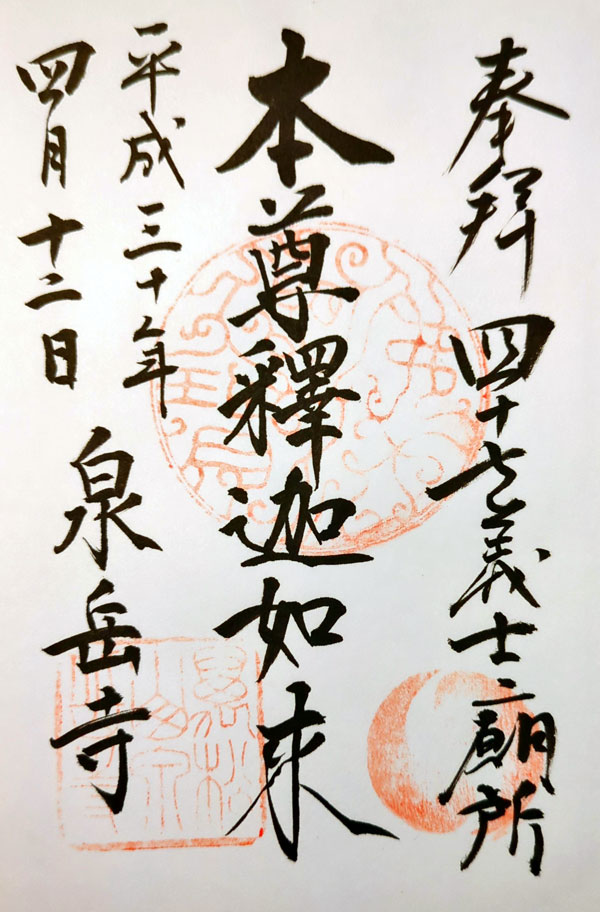 奉拜 四十七義士廟所
本尊釋迦如来
平成三十年
四月十二日
泉岳寺